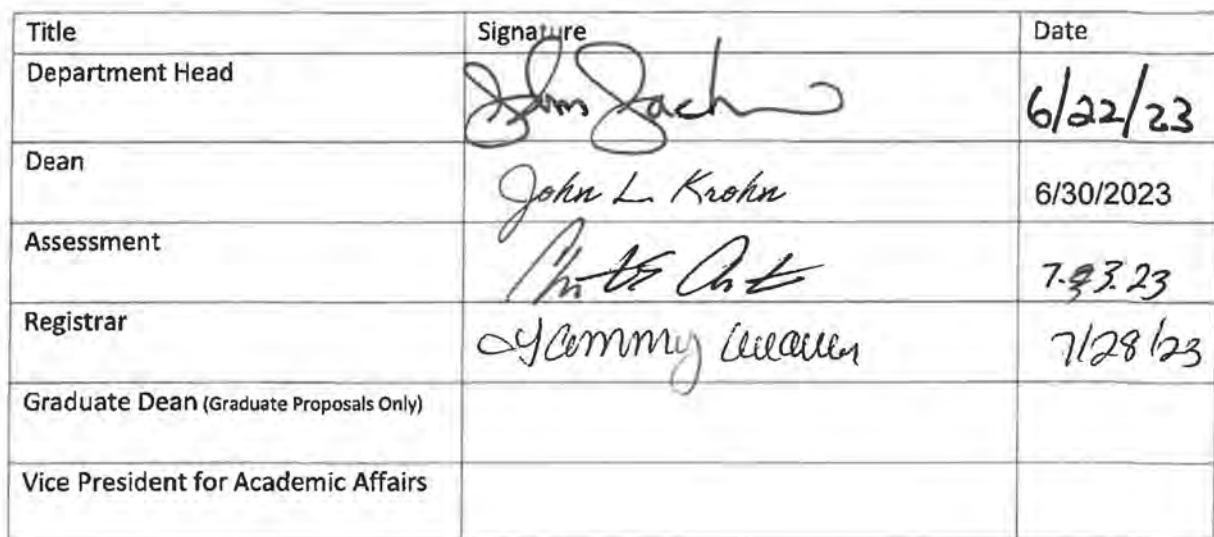 Title Signature Date
Department Head John 6/22/23
Dean John L. Krohn 6/30/2023
Assessment
Registrar Tammy Weaver 7/28/23
Graduate Dean (Graduate Proposals Only)
Vice President for Academic Affairs